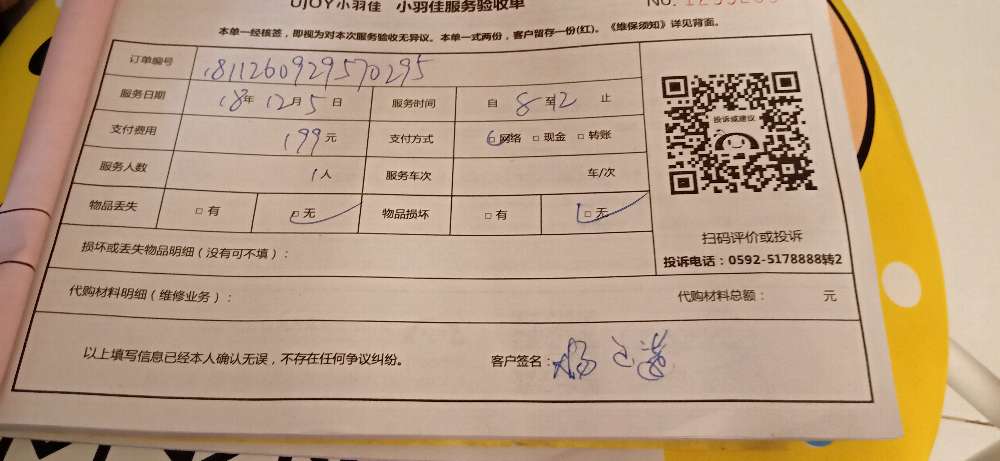 UJOY小羽佳 小羽佳服务验收单 No.
本单一经核签，即视为对本次服务验收无异议。本单一式两份，客户留存一份(红)。《维保须知》详见背面。
订单编号 1811260929570295
服务日期 18年 12月 5日 服务时间 自 8 至 12 止
支付费用 199元 支付方式 □网络 □现金 □转账
服务人数 1人 服务车次 车/次
物品丢失 □有 □无 物品损坏 □有 □无
投诉或建议
扫码评价或投诉
投诉电话：0592-5178888转2
损坏或丢失物品明细（没有可不填）：
代购材料明细（维修业务）： 代购材料总额： 元
以上填写信息已经本人确认无误，不存在任何争议纠纷。 客户签名：杨